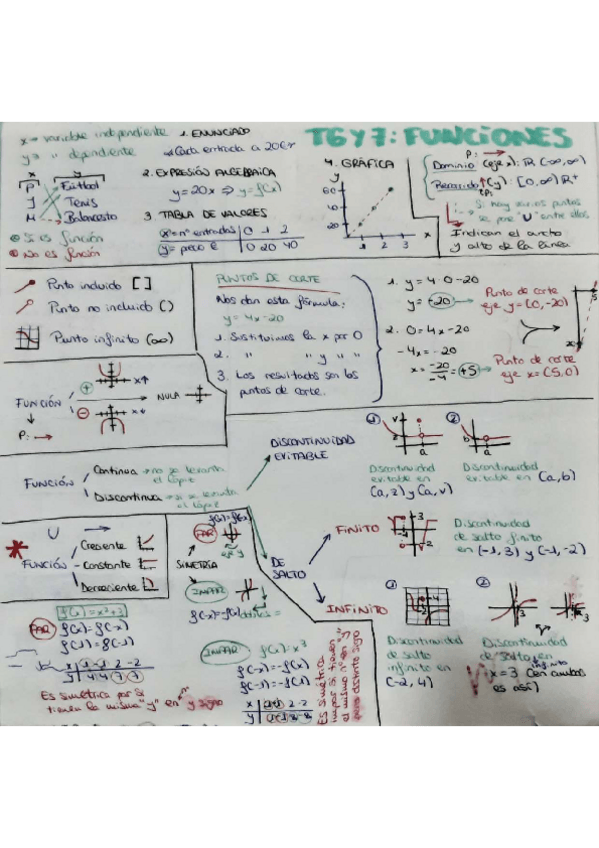 T6 Y 7: FUNCIONES
x → variable independiente
y → " dependiente
x y
P Fútbol
J Tenis
M Baloncesto
Sí es función
No es función
1. ENUNCIADO
Cada entrada a 20€
2. EXPRESIÓN ALGEBRAICA
y=20x ⇒ y=f(x)
3. TABLA DE VALORES
x=nº entradas 0 1 2
y= precio € 0 20 40
4. GRÁFICA
y
60
40
20
1 2 3 x
P:
Dominio (eje x): ℝ (-∞,∞)
Recorrido (y): [0,∞) ℝ+
Si hay varios puntos
se pone "U" entre ellos
Indican el ancho
y alto de la línea
Punto incluido [ ]
Punto no incluido ( )
Punto infinito (∞)
PUNTOS DE CORTE
Nos dan esta fórmula:
y = 4x-20
1. Sustituimos la x por 0
2. " " y " "
3. Los resultados son los
puntos de corte.
1. y = 4·0-20
y = -20
Punto de corte
eje y=(0,-20)
2. 0=4x-20
-4x=-20
x= -20/-4 = +5
Punto de corte
eje x=(5,0)
FUNCIÓN
+
x↑
-
x↓
NULA
P:
FUNCIÓN
Continua → no se levanta
el lápiz
Discontinua → si se levanta
el lápiz
DISCONTINUIDAD
EVITABLE
1
2
Discontinuidad
evitable en
(a,2) y (a,v)
Discontinuidad
evitable en (a,b)
DE
SALTO
FINITO
Discontinuidad
de salto finito
en (-1,3) y (-1,-2)
INFINITO
1
2
Discontinuidad
de salto
infinito en
(-2,4)
Discontinuidad
de salto en
infinito
x=3 (en ambos
es así)
FUNCIÓN
Creciente
Constante
Decreciente
SIMETRÍA
PAR
f(x)=f(-x)
eje y
IMPAR
f(-x)=-f(x)
f(x)=x²+3
PAR
f(x)=f(-x)
f(1)=f(-1)
x 1 -1 2 -2
y 4 4 7 7
Es simétrica par si
tienen la misma "y" en nº y signo
IMPAR
f(x)=x³
f(-x)=-f(x)
f(-1)=-f(1)
x 1 -1 2 -2
y 1 -1 8 -8
Es simétrica
impar si tienen
el mismo nº en "y"
pero distinto signo